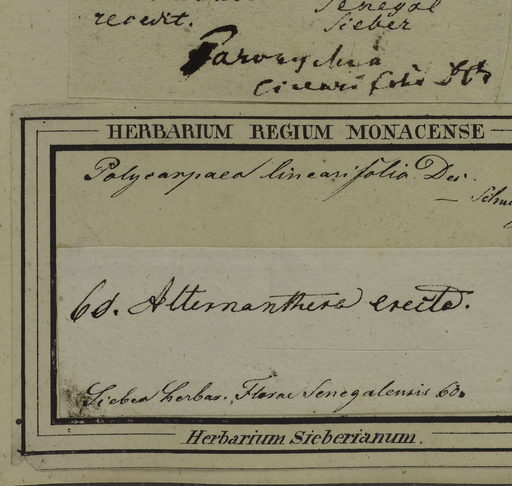 Senegal
recedit. Sieber
Paronychia
linearifolia
HERBARIUM REGIUM MONACENSE
Polycarpaea linearifolia Des.
60. Alternanthera erecta.
Sieber herbar. Florae Senegalensis 60.
Herbarium Sieberianum.